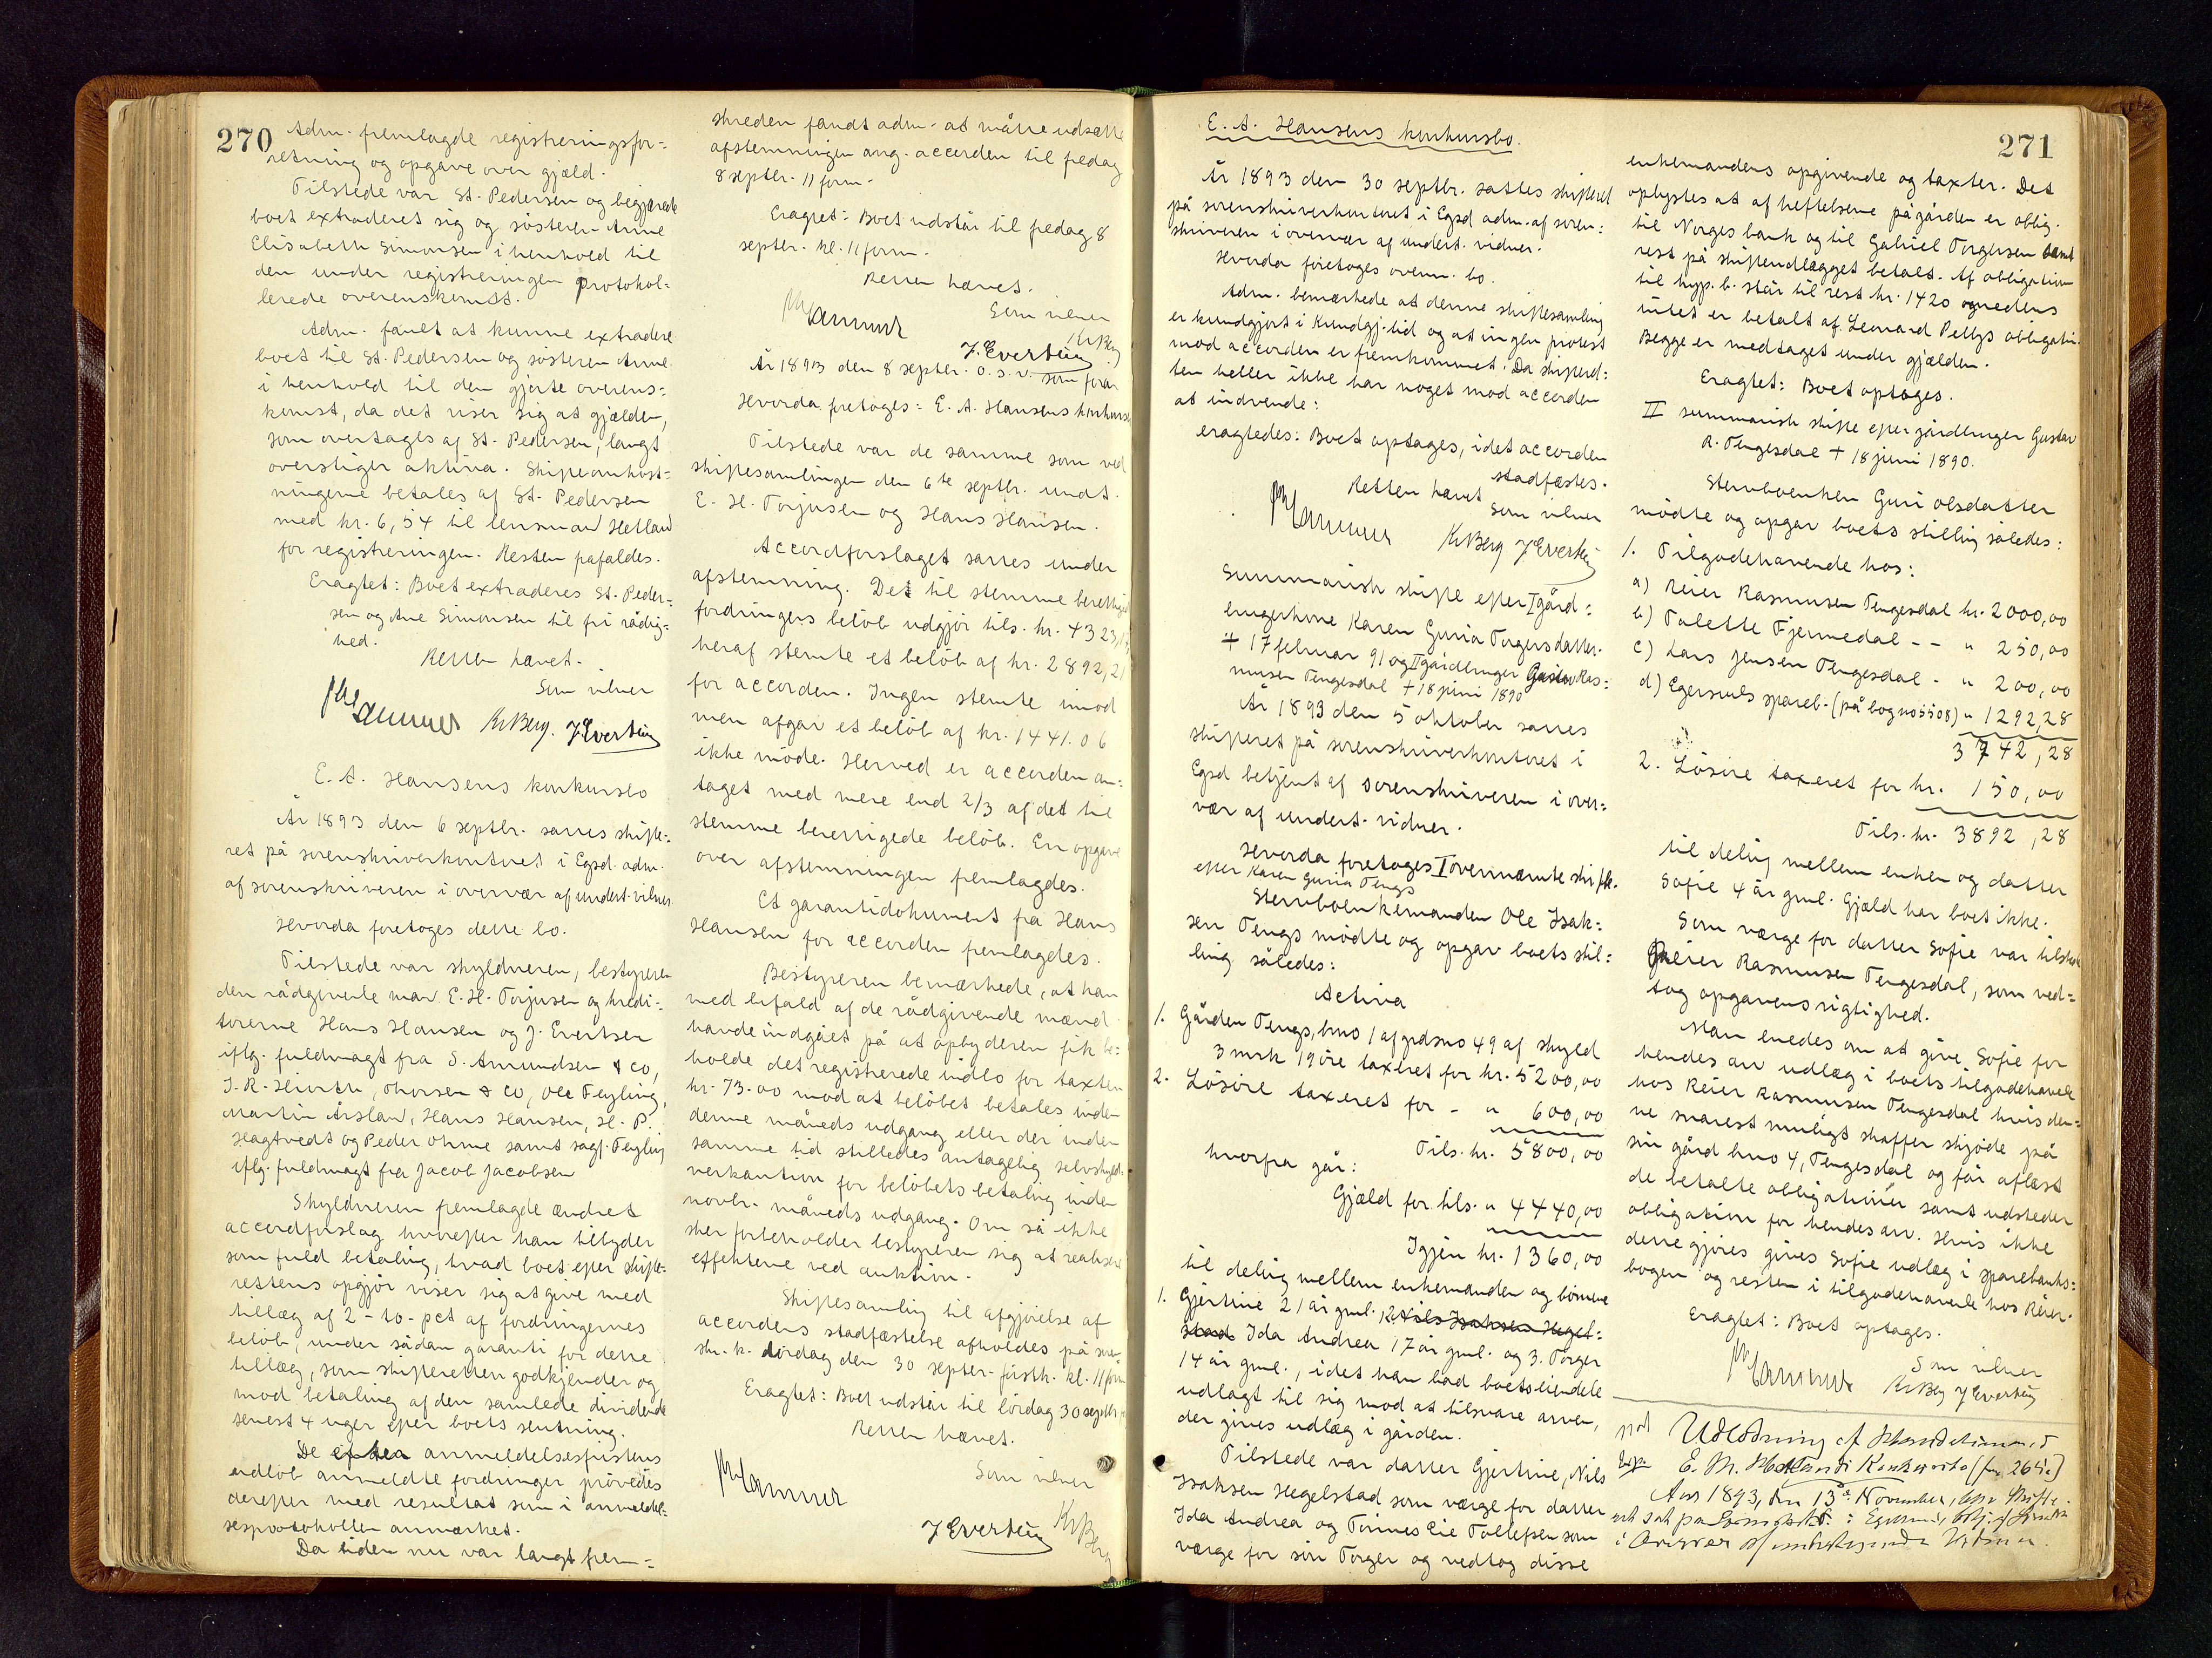 270
Adm. fremlagde registreringsfor=
retning og opgave over gjæld.
Tilstede var St. Pedersen og begjærede
boet extraderet sig og søsteren Anne
Elisabeth Simonsen i henhold til
den under registreringen protokol=
lerede overenskomst.
Adm. fandt at kunne extradere
boet til St. Pedersen og søsteren Anne
i henhold til den gjorte overens=
komst, da det viser sig at gjælden,
som overtages af St. Pedersen, langt
overstiger aktiva. Skifteomkost=
ningerne betales af St. Pedersen
med kr. 6,54 til lensmand Hetland
for registreringen. Resten påfaldes.
Eragtet: Boet extraderes St. Peder=
sen og Ane Simonsen til fri rådig=
hed.
Retten hævet.
Som vidner
Kr Berg. J Evertsen
E. A. Hansens konkursbo
År 1893 den 6 septbr. sattes skifte=
ret på sorenskriverkontoret i Egsd. adm.
af sorenskriveren i overvær af undert. vidner.
Hvorda foretoges dette bo.
Tilstede var skyldneren, bestyreren
den rådgivende mand E. H. Torjusen og kredi=
torerne Hans Hansen og J. Evertsen
iflg. fuldmagt fra S. Amundsen & Co,
J. R. Hiorth, Thorsen & Co, Ole Feyling,
Martin Årsland, Hans Hansen, H. P.
Hagtvedt og Peder Ohme samt sagf. Feyling
iflg. fuldmagt fra Jacob Jacobsen
Skyldneren fremlagde ændret
accordforslag hvorefter han tilbyder
som fuld betaling, hvad boet efter skifte=
rettens opgjør viser sig at give med
tillæg af 2 - to - pct af fordringernes
beløb, under sådan garanti for dette
tillæg, som skifteretten godkjender og
mod betaling af den samlede dividende
senest 4 uger efter boets slutning.
De efter anmeldelsesfristens
udløb anmeldte fordringer prøvedes
derefter med resultat som i anmeldel=
sesprotokollen anmærket.
Da tiden nu var langt frem=
skreden fandt adm. at måtte udsætte
afstemningen ang. accorden til fredag
8 septbr. 11 form.
Eragtet: Boet udstår til fredag 8
septbr. kl. 11 form.
Retten hævet.
Som vidner
Kr Berg
J. Evertsen
År 1893 den 8 septbr. o. s. v. som foran
Hvorda fretoges: E. A. Hansens konkurs
Tilstede var de samme som ved
skiftesamlingen den 6te septbr. undt.
E. H. Torjusen og Hans Hansen.
Accordforslaget sattes under
afstemning. Det til stemme berettiget
fordringers beløb udgjør tils. kr. 4323,
heraf stemte et beløb af kr. 2892,21
for accorden. Ingen stemte imod
men afgav et beløb af kr. 1441.06
ikke møde. Herved er accorden an=
taget med mere end 2/3 af det til
stemme berettigede beløb. En opgave
over afstemningen fremlagdes.
Et garantidokument fra Hans
Hansen for accorden fremlagdes.
Bestyreren bemærkede, at han
med bifald af de rådgivende mænd
havde indgået på at opbyderen fik be=
holde det registrerede indbo for taxten
kr. 73.00 mod at beløbet betales inden
denne måneds udgang eller der inden
samme tid stilledes antagelig selvskyld=
nerkaution for beløbets betaling inden
novbr. måneds udgang. Om så ikke
sker forbeholder bestyreren sig at realisere
effekterne ved auktion.
Skiftesamling til afgjørelse af
accordens stadfæstelse afholdes på sor=
skr. k. lørdag den 30 septbr. førstk. kl. 11 form
Eragtet: Boet udstår til lørdag 30 septbr
Retten hævet.
Som vidner
Kr Berg
J Evertsen
271
E. A. Hansens konkursbo.
År 1893 den 30 septbr. sattes skifteret
på sorenskriverkontoret i Egsd adm. af soren=
skriveren i overvær af undert. vidner.
Hvorda foretoges ovenn. bo.
Adm. bemærkede at denne skiftesamling
er kundgjort i Kundgj. tid og at ingen protest
mod accorden er fremkommet. Da skifteret=
ten heller ikke har noget mod accorden
at indvende:
eragtedes: Boet optages, idet accorden
stadfæstes.
Retten hævet
Som vidner
Kr Berg J Evertsen
Summarisk skifte efter I gård=
brugerkone Karen Guria Torgersdatter.
+ 17 februar 91 og II gårdbruger Gustav Ras=
musen Tengesdal + 18 juni 1890
År 1893 den 5 oktober sattes
skifteret på sorenskriverkontoret i
Egsd betjent af sorenskriveren i over=
vær af undert. vidner.
Hvorda foretoges I ovennævnte skifte.
efter Karen Guria Tengs
Stervboenkemanden Ole Isak=
sen Tengs mødte og opgav boets stil=
ling således:
Activa
1. Gården Tengs, bno 1 af grdsno 49 af skyld
3 mrk 19 øre taxeret for kr. 5200,00
2. Løsøre taxeret for - " 600,00
Tils. kr. 5800,00
hvorfra går:
Gjæld for tils. " 4440,00
Igjen kr. 1360,00
til deling mellem enkemanden og børnene
1. Gjertine 21 år gml. 2. Nils Isaksen Hegel=
stad Ida Andrea 17 år gml. og 3. Torger
14 år gml., idet han bad boets eiendele
udlagt til sig mod at tilsvare arven,
der gives udlæg i gården.
Tilstede var datter Gjertine, Nils
Isaksen Hegelstad som værge for datter
Ida Andrea og Tønnes Eie Tollefsen som
værge for søn Torger og vedtog disse
enkemandens opgivende og taxter. Det
oplystes at af heftelserne på gården er oblig.
til Norges bank og til Gabriel Torgersen samt
rest på skifteudlægget betalt. Af obligation
til hyp. b. står til rest kr. 1420 og medens
intet er betalt af Leonard Pettys obligation.
Begge er medtaget under gjælden.
Eragtet: Boet optages.
II summarisk skifte efter gårdbruger Gustav
R. Tengesdal + 18 juni 1890.
Stervboenken Guri Olsdatter
mødte og opgav boets stilling således:
1. Tilgodehavende hos:
a) Reier Rasmusen Tengesdal kr. 2000,00
b) Tolette Fjermedal - - " 250,00
c) Lars Jensen Tengesdal - " 200,00
d) Egersunds spareb. (på bog no 5508) " 1292,28
3742,28
2. Løsøre taxeret for kr. 150,00
Tils. kr. 3892,28
til deling mellem enken og datter
Sofie 4 år gml. Gjæld har boet ikke.
Som værge for datter Sofie var tilstede
Reier Rasmusen Tengesdal, som ved=
tog opgavens rigtighed.
Man enedes om at give Sofie for
hendes arv udlæg i boets tilgodehavende
hos Reier Rasmusen Tengesdal hvis den=
ne snarest muligt skaffer skjøde på
sin gård bno 4, Tengesdal og får aflæst
de betalte obligationer samt udsteder
obligation for hendes arv. Hvis ikke
dette gjøres gives Sofie udlæg i sparebanks=
bogen og resten i tilgodehavende hos Reier.
Eragtet: Boet optages.
Som vidner
Kr Berg J Evertsen
Udlodning af
E. M. Konkursbo (fra 264)
Aar 1893, den 13de November, blev Skifte-
ret sat paa i Egersund, betj. af
i Overvær af undertegnede Vidner.